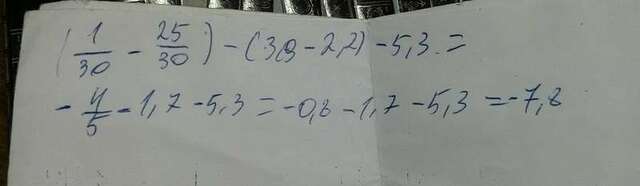 (1/30 - 25/30) - (3,9 - 2,2) - 5,3 =
- 4/5 - 1,7 - 5,3 = -0,8 - 1,7 - 5,3 = -7,8